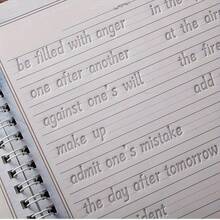 be filled with anger
one after another
against one's will
make up
admit one's mistake
the day after tomorrow
in the air
at the
the fire
add
even